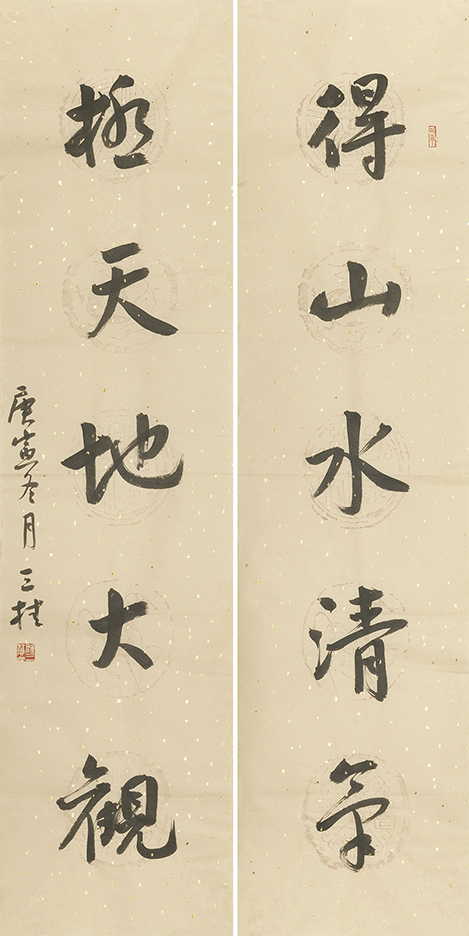 得山水清氣
極天地大觀
庚寅冬月 三桂